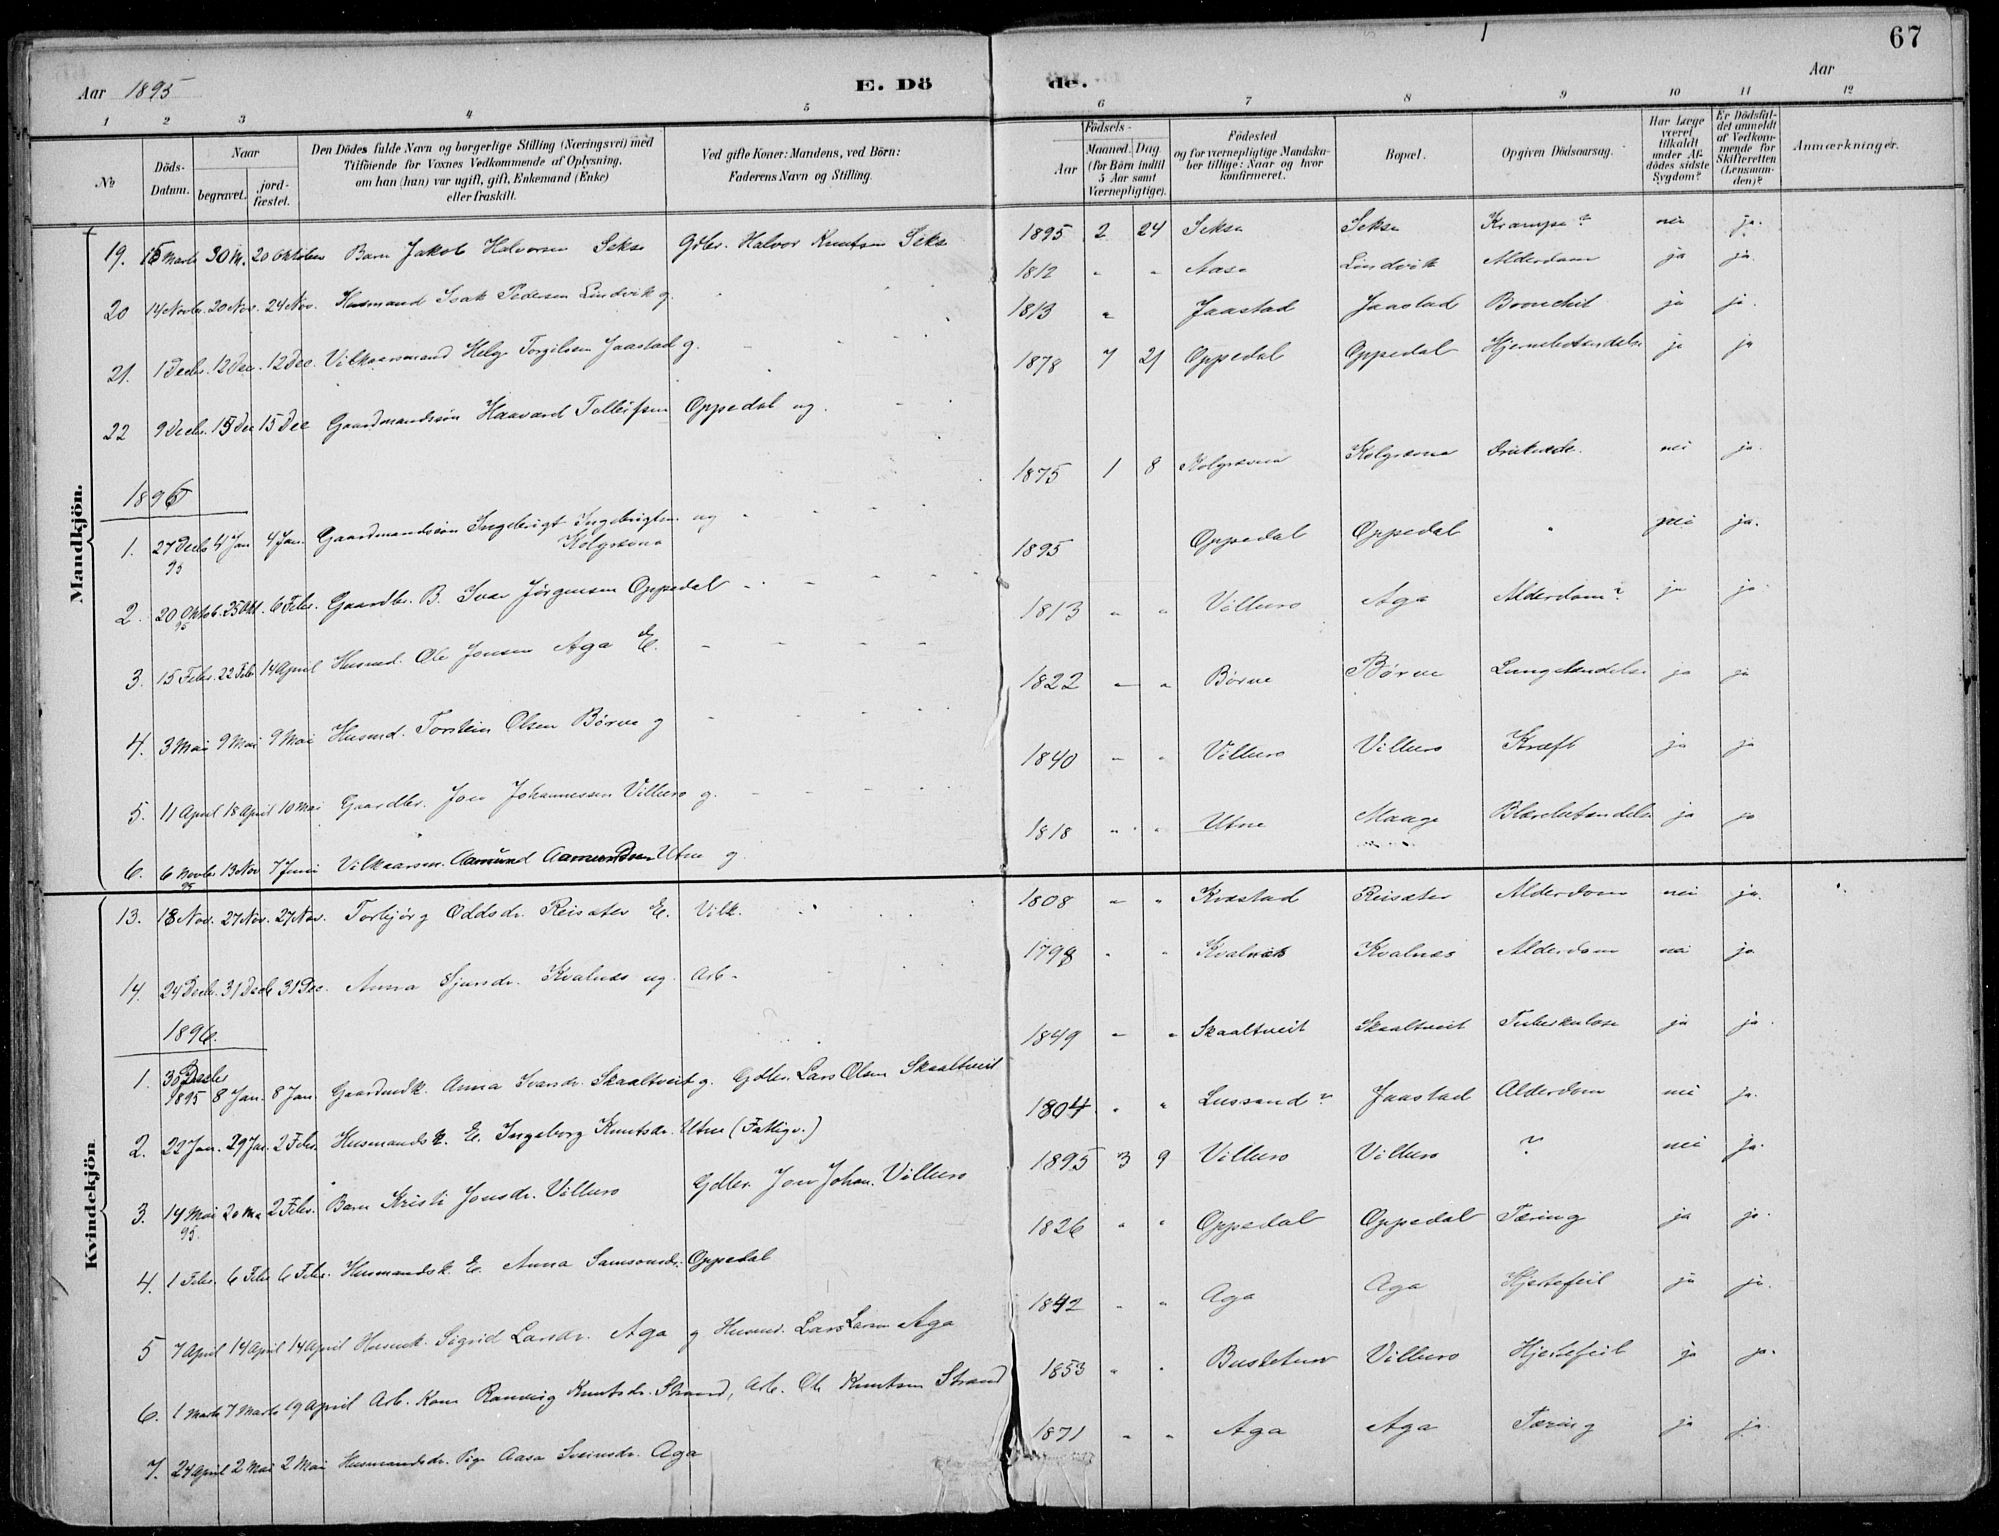 67
Aar 1895 E. Dö de. Aar
1 2 3 4 5 6 7 8 9 10 11 12
№ Döds-Datum. Naar begravet. jord-fæstet. Den Dödes fulde Navn og borgerlige Stilling (Næringsvei) med Tilföiende for Voxnes Vedkommende af Oplysning, om han (hun) var ugift, gift, Enkemand (Enke) eller fraskilt. Ved gifte Koner: Mandens, ved Börn: Faderens Navn og Stilling. Födsels- Aar Maaned. Dag (for Börn indtil 5 Aar samt Værnepligtige). Födested og for værnepligtige Mandskaber tillige: Naar og hvor konfirmeret. Bopæl. Opgiven Dödsaarsag. Har Læge været tilkaldt under Afdödes sidste Sygdom? Er Dödsfaldet anmeldt af Vedkommende for Skifteretten (Lensmanden)? Anmærkninger.
Mandkjön.
19. 15 Marts 30 M. 20 Oktober Barn Jakob Halvorsen Sekse Gdbr. Halvor Knutsen Sekse 1895 2 24 Sekse Sekse Krampe? nei ja.
20 14 Novbr. 20 Nov. 24 Nov. Husmand Isak Pedersen Lindvik g. 1812 " " Aase Lindvik Alderdom ja ja.
21. 1 Decbr. 12 Dec. 12 Dec. Vilkaarsmand Helge Torgilsen Jaastad g. 1813 " Jaastad Jaastad Bronchit ja ja.
22 9 Decbr. 15 Dec 15 Dec Gaardmandssön Haavard Tollefsen Oppedal ug. 1878 7 21 Oppedal Oppedal Hjernebetændelse ja ja
1896
1. 27 Decbr 95 4 Jan 4 Jan. Gaardmandssön Ingebrigt Ingebrigtsen Kolgræna ug 1875 1 8 Kolgræna Kolgræna Druknede. nei ja.
2. 20 Oktob. 95 25 Okt. 6 Febr. Gaardbr. B. Ivar Jørgensen Oppedal 1895 Oppedal Oppedal " nei ja.
3. 15 Febr. 22 Feb 14 April Husmd. Ole Jonsen Aga E. 1813 " " Villuro Aga Alderdom? ja ja.
4. 3 Mai 9 Mai 9 Mai Husmd. Torstein Olsen Børve g 1822 " " Børve Børve Lungebetændelse ja ja
5. 11 April 18 April 10 Mai Gaardbr. Jon Johannessen Villuro g. 1840 " " Villuro Villuro Kræft ja ja
6. 6 Novbr 95 13 Nov 7 Juni Vilkaarsm. Aamund Aamundsen Utne g 1818 " " Utne Maage Blærebetændelse ja ja
Kvindekjön
13. 18 Nov. 27 Nov. 27 Nov. Torbjørg Oddsdr. Reisæter E. Vilk. 1808 " " Kvæstad Reisæter Alderdom nei ja.
14. 24 Decbr. 31 Decbr 31 Dec. Anna Sjursdr. Kvalnæs ug. Arb. 1798 " " Kvalnæs Kvalnæs Alderdom nei ja
1896.
1. 30 Decbr 1895 8 Jan. 8 Jan. Gaardmdk. Anna Ivarsdr. Skaaltveit g. Gdbr. Lars Olsen Skaaltveit 1849 " " Skaaltveit Skaaltveit Tuberkulose ja ja.
2. 22 Jan. 29 Jan. 2 Febr. Husmandsk. E. Ingeborg Knutsdr. Utne (Fattigv.) 1804. " " Lussand? Jaastad Alderdom nei ja.
3. 14 Mai 95. 20 Ma 2 Febr. Barn Kristi Jonsdr. Villuro Gdbr. Jon Johan. Villuro 1895 3 9 Villuro Villuro ? nei ja.
4. 1 Febr. 6 Febr 6 Febr. Husmandsk. E. Anna Samsonsdr. Oppedal 1826 " " Oppedal Oppedal Tæring ja ja.
5 7 April 14 April 14 April Husmk. Sigrid Larsdr. Aga g Husmd. Lars Larsen Aga 1842 " " Aga Aga Hjertefeil ja ja.
6. 1 Marts 7 Marts 19 April Arb. Kone Ranveig Knutsdr. Strand, Arb. Ole Knutsen Strand 1853 " " Bustetun Villuro Hjertefeil ja ja.
7. 24 April 2 Mai 2 Mai Husmandsdr. Pige Aasa Sveinsdr. Aga 1871 " " Aga Aga Tæring ja ja.